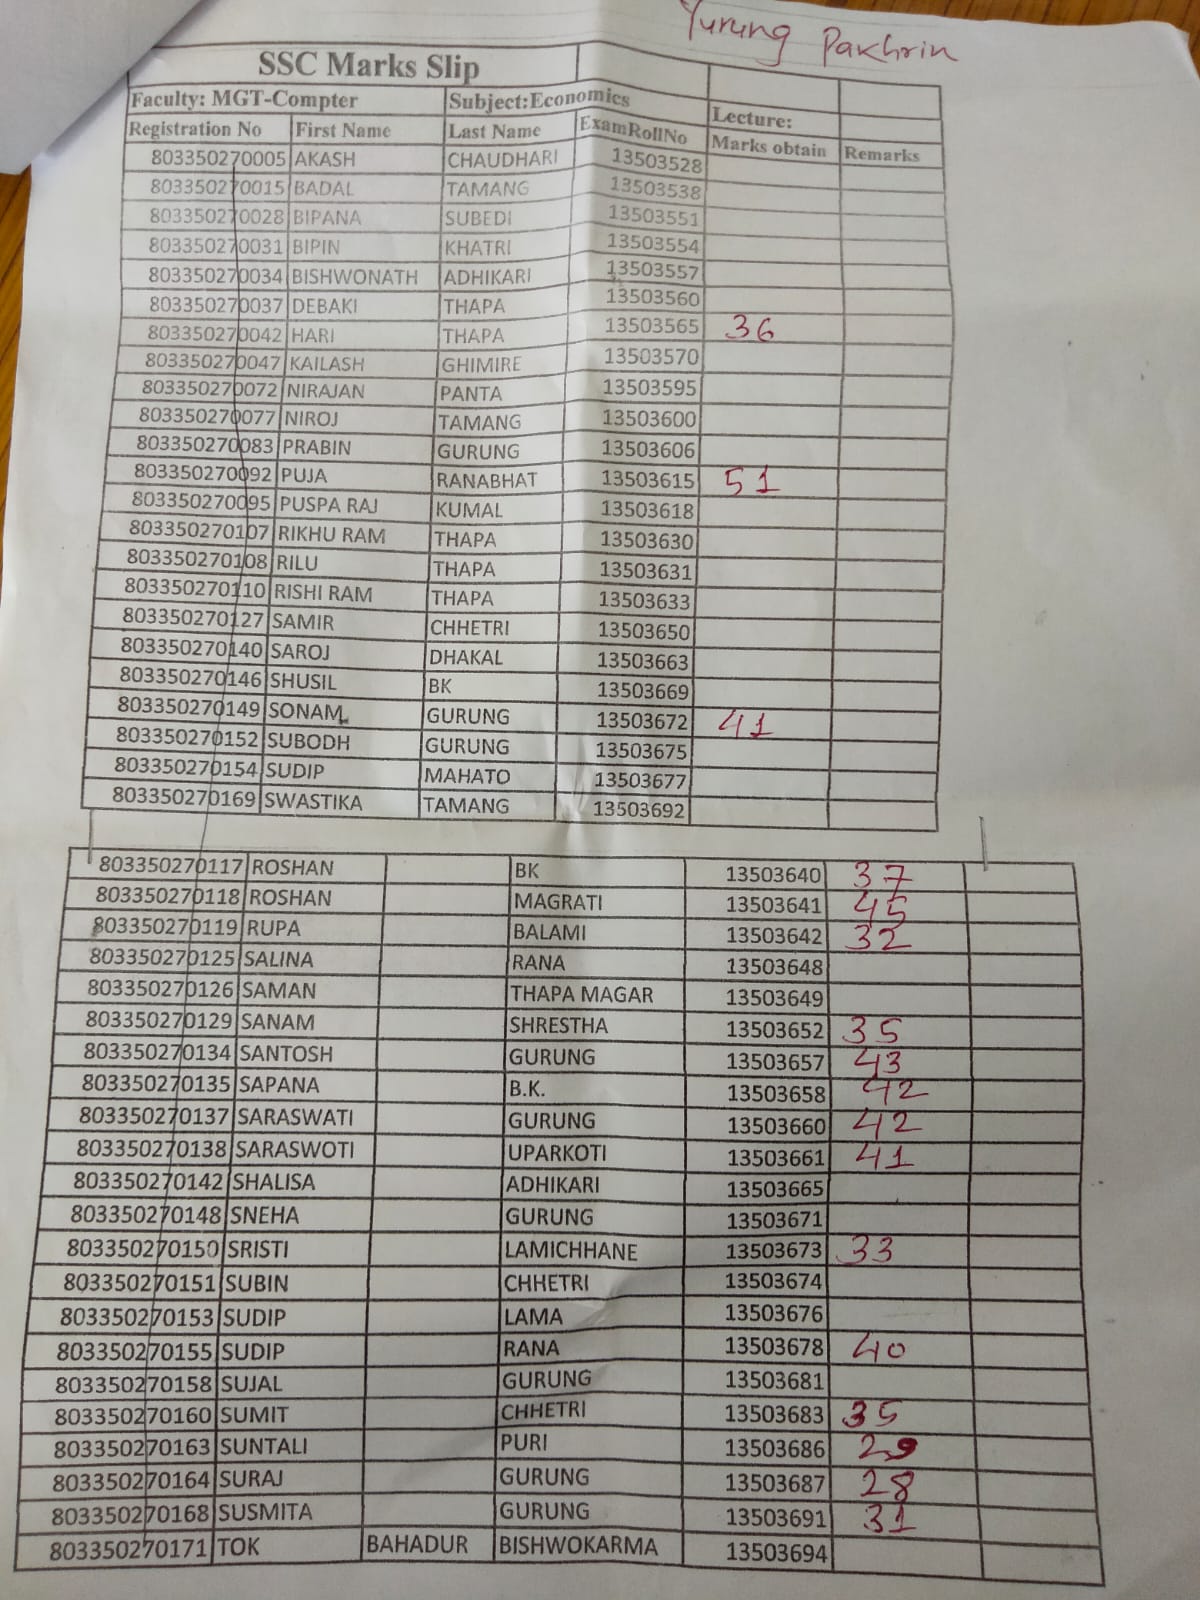 Yurung Pakhrin
SSC Marks Slip
Faculty: MGT-Compter Subject:Economics Lecture:
Registration No First Name Last Name ExamRollNo Marks obtain Remarks
803350270005 AKASH CHAUDHARI 13503528
803350270015 BADAL TAMANG 13503538
803350270028 BIPANA SUBEDI 13503551
803350270031 BIPIN KHATRI 13503554
803350270034 BISHWONATH ADHIKARI 13503557
803350270037 DEBAKI THAPA 13503560
803350270042 HARI THAPA 13503565 36
803350270047 KAILASH GHIMIRE 13503570
803350270072 NIRAJAN PANTA 13503595
803350270077 NIROJ TAMANG 13503600
803350270083 PRABIN GURUNG 13503606
803350270092 PUJA RANABHAT 13503615 51
803350270095 PUSPA RAJ KUMAL 13503618
803350270107 RIKHU RAM THAPA 13503630
803350270108 RILU THAPA 13503631
803350270110 RISHI RAM THAPA 13503633
803350270127 SAMIR CHHETRI 13503650
803350270140 SAROJ DHAKAL 13503663
803350270146 SHUSIL BK 13503669
803350270149 SONAM GURUNG 13503672 41
803350270152 SUBODH GURUNG 13503675
803350270154 SUDIP MAHATO 13503677
803350270169 SWASTIKA TAMANG 13503692
803350270117 ROSHAN BK 13503640 37
803350270118 ROSHAN MAGRATI 13503641 45
803350270119 RUPA BALAMI 13503642 32
803350270125 SALINA RANA 13503648
803350270126 SAMAN THAPA MAGAR 13503649
803350270129 SANAM SHRESTHA 13503652 35
803350270134 SANTOSH GURUNG 13503657 43
803350270135 SAPANA B.K. 13503658 42
803350270137 SARASWATI GURUNG 13503660 42
803350270138 SARASWOTI UPARKOTI 13503661 41
803350270142 SHALISA ADHIKARI 13503665
803350270148 SNEHA GURUNG 13503671
803350270150 SRISTI LAMICHHANE 13503673 33
803350270151 SUBIN CHHETRI 13503674
803350270153 SUDIP LAMA 13503676
803350270155 SUDIP RANA 13503678 40
803350270158 SUJAL GURUNG 13503681
803350270160 SUMIT CHHETRI 13503683 35
803350270163 SUNTALI PURI 13503686 29
803350270164 SURAJ GURUNG 13503687 28
803350270168 SUSMITA GURUNG 13503691 31
803350270171 TOK BAHADUR BISHWOKARMA 13503694